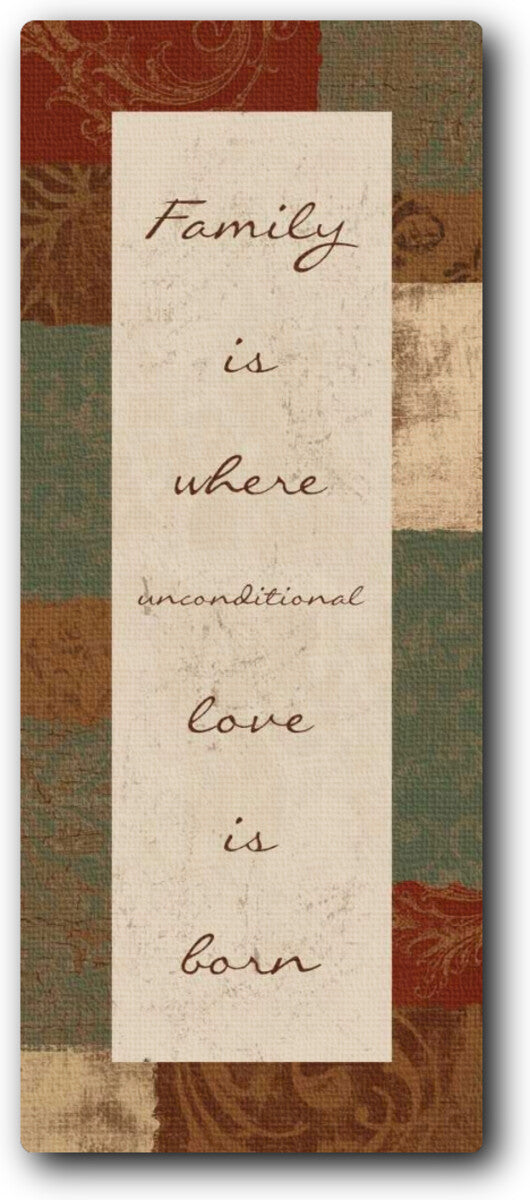 Family
is
where
unconditional
love
is
born